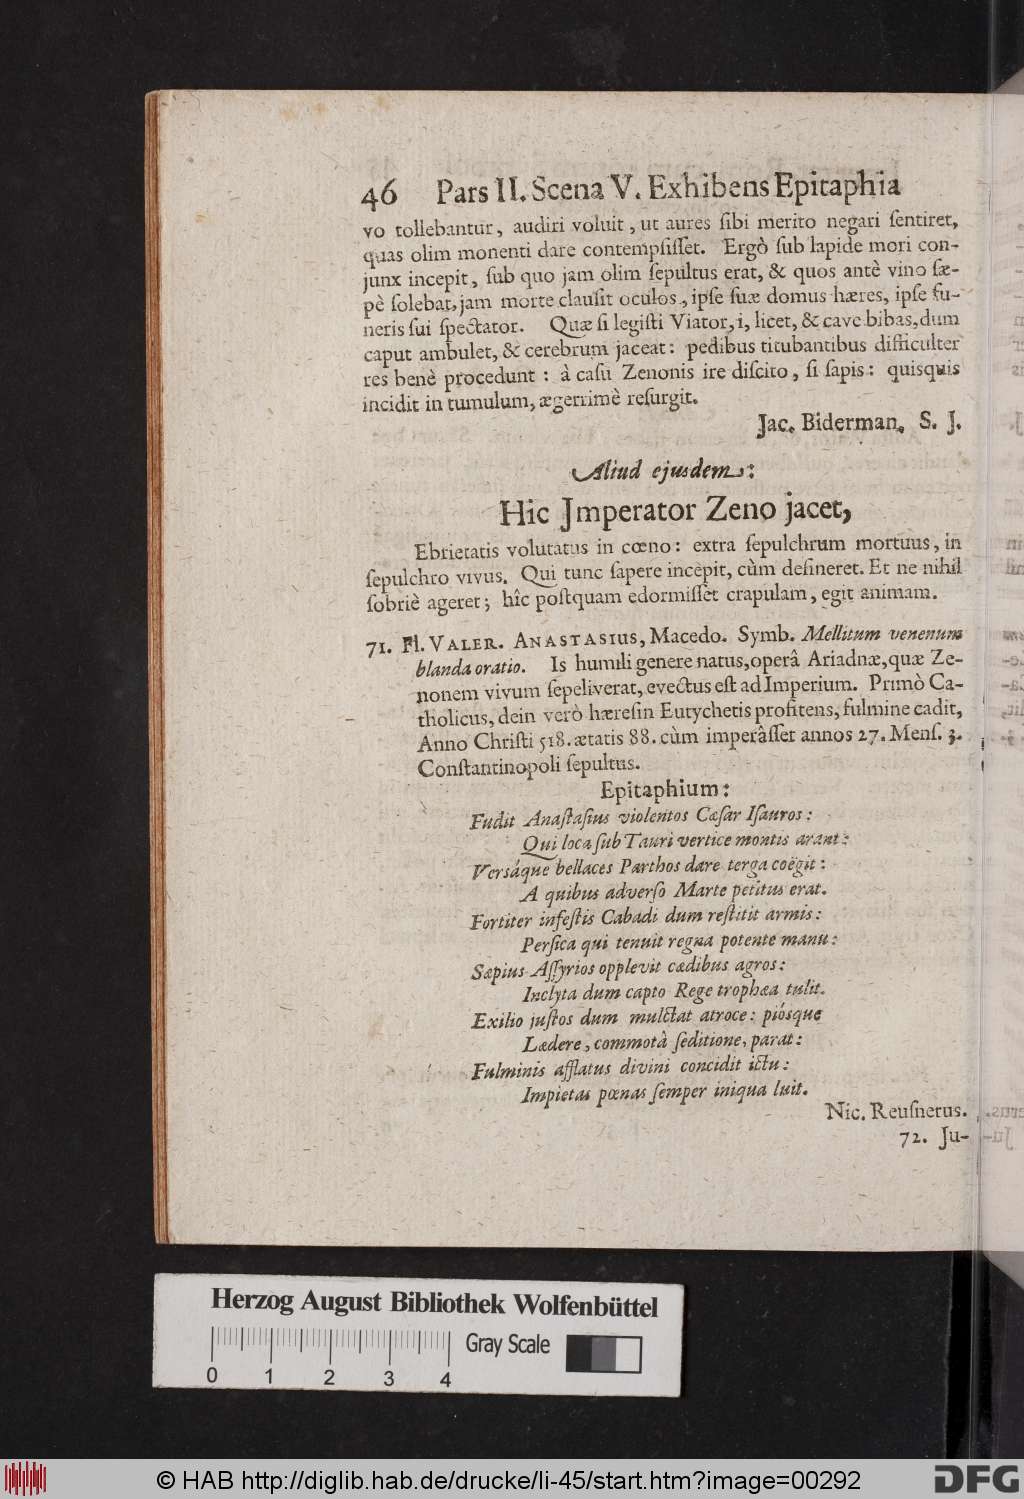 46 Pars II. Scena V. Exhibens Epitaphia
vo tollebantur, audiri voluit, ut aures sibi merito negari sentiret,
quas olim monenti dare contempsisset. Ergò sub lapide mori con-
junx incepit, sub quo jam olim sepultus erat, & quos antè vino sæ-
pè solebat, jam morte clausit oculos, ipse suæ domus hæres, ipse fu-
neris sui spectator. Quæ si legisti Viator, i, licet, & cave bibas, dum
caput ambulet, & cerebrum jaceat: pedibus titubantibus difficulter
res benè procedunt: à casu Zenonis ire discito, si sapis: quisquis
incidit in tumulum, ægerrimè resurgit.
Jac. Biderman, S. J.
Aliud ejusdem:
Hic Jmperator Zeno jacet,
Ebrietatis volutatus in cœno: extra sepulchrum mortuus, in
sepulchro vivus. Qui tunc sapere incepit, cùm desineret. Et ne nihil
sobriè ageret; hîc postquam edormisset crapulam, egit animam.
71. Fl. VALER. ANASTASIUS, Macedo. Symb. Mellitum venenum
blanda oratio. Is humili genere natus, operâ Ariadnæ, quæ Ze-
nonem vivum sepeliverat, evectus est ad Imperium. Primò Ca-
tholicus, dein verò hæresin Eutychetis profitens, fulmine cadit,
Anno Christi 518. ætatis 88. cùm imperâsset annos 27. Mens. 3.
Constantinopoli sepultus.
Epitaphium:
Fudit Anastasius violentos Cæsar Isauros:
Qui loca sub Tauri vertice montis arant:
Versáque bellaces Parthos dare terga coëgit:
A quibus adverso Marte petitus erat.
Fortiter infestis Cabadi dum restitit armis:
Persica qui tenuit regna potente manu:
Sæpius Assyrios opplevit cædibus agros:
Inclyta dum capto Rege trophæa tulit.
Exilio justos dum mulctat atroce: piósque
Lædere, commotâ seditione, parat:
Fulminis afflatus divini concidit ictu:
Impietas pœnas semper iniqua luit.
Nic. Reusnerus.
72. Ju-
Herzog August Bibliothek Wolfenbüttel
Gray Scale
0 1 2 3 4
© HAB http://diglib.hab.de/drucke/li-45/start.htm?image=00292
DFG